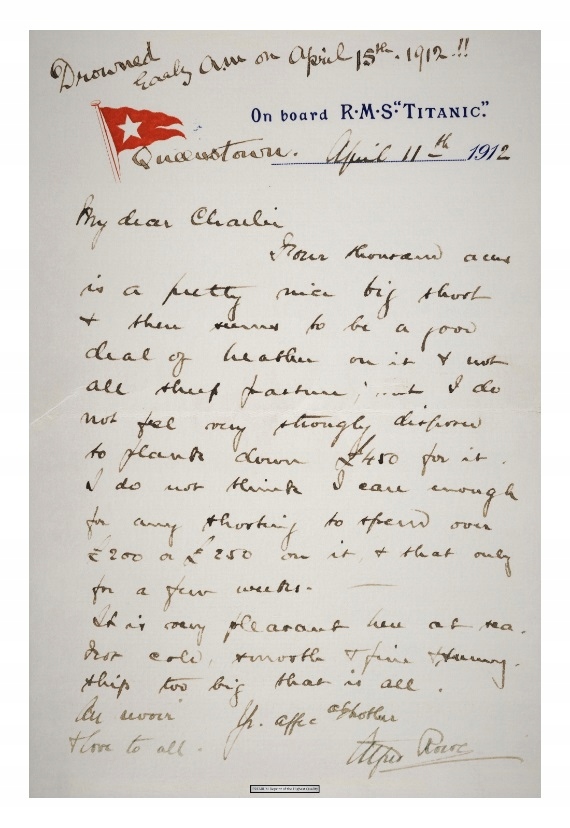 Drowned
Early A.m on April 15th. 1912!!
On board R·M·S·"TITANIC."
Queenstown. April 11th 1912
My dear Charlie
Four thousand acres
is a pretty nice big shoot
& there seems to be a good
deal of heather on it & not
all sheep pasture; but I do
not feel very strongly disposed
to plank down £450 for it.
I do not think I care enough
for any shooting to spend over
£200 or £250 on it, & that only
for a few weeks. —
It is very pleasant here at sea.
Not cold, smooth & fine & sunny.
Ship too big that is all.
Au revoir Yr. affec Brother
& love to all. Alfred Rowe